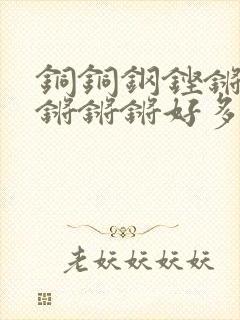 銅銅鋼鏗鏘
鏘鏘鏘好多
老妖妖妖妖